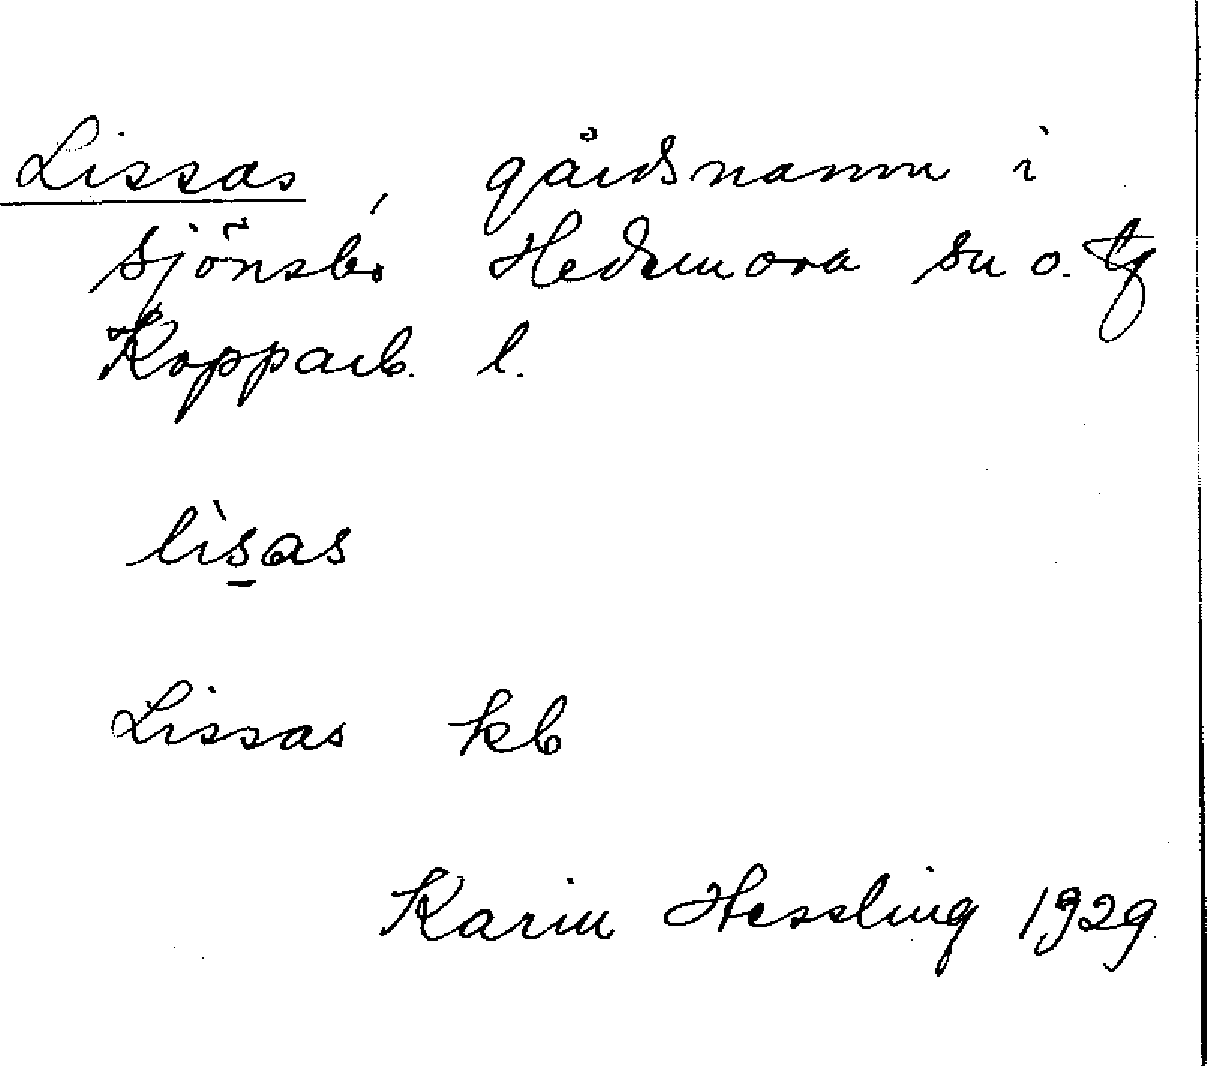 Lissas, gårdsnamn i
Sjönsbo Hedemora sn o. tg
Kopparb. l.
lìs̲as
Lissas kb
Karin Hessling 1929